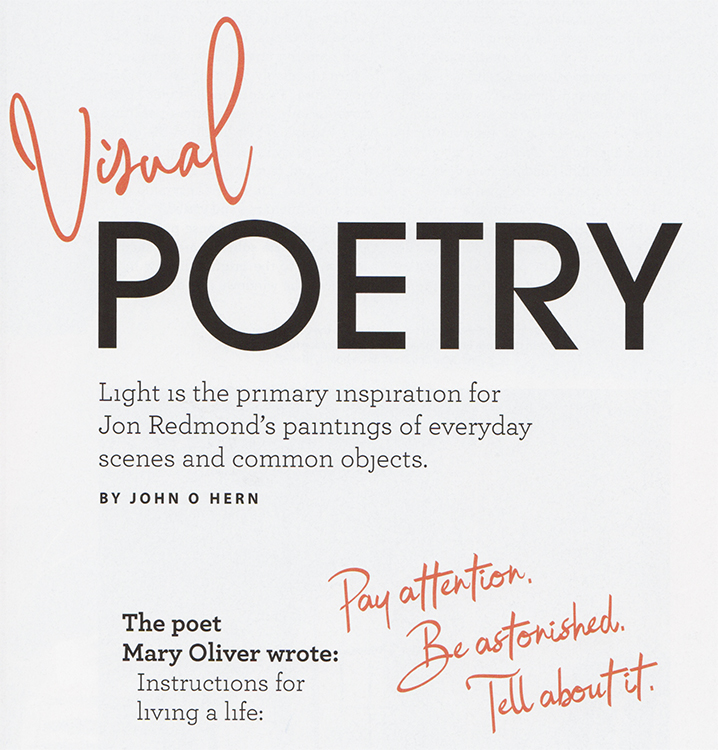 Visual
POETRY
Light is the primary inspiration for
Jon Redmond’s paintings of everyday
scenes and common objects.
BY JOHN O HERN
The poet
Mary Oliver wrote:
Instructions for
living a life:
Pay attention.
Be astonished.
Tell about it.